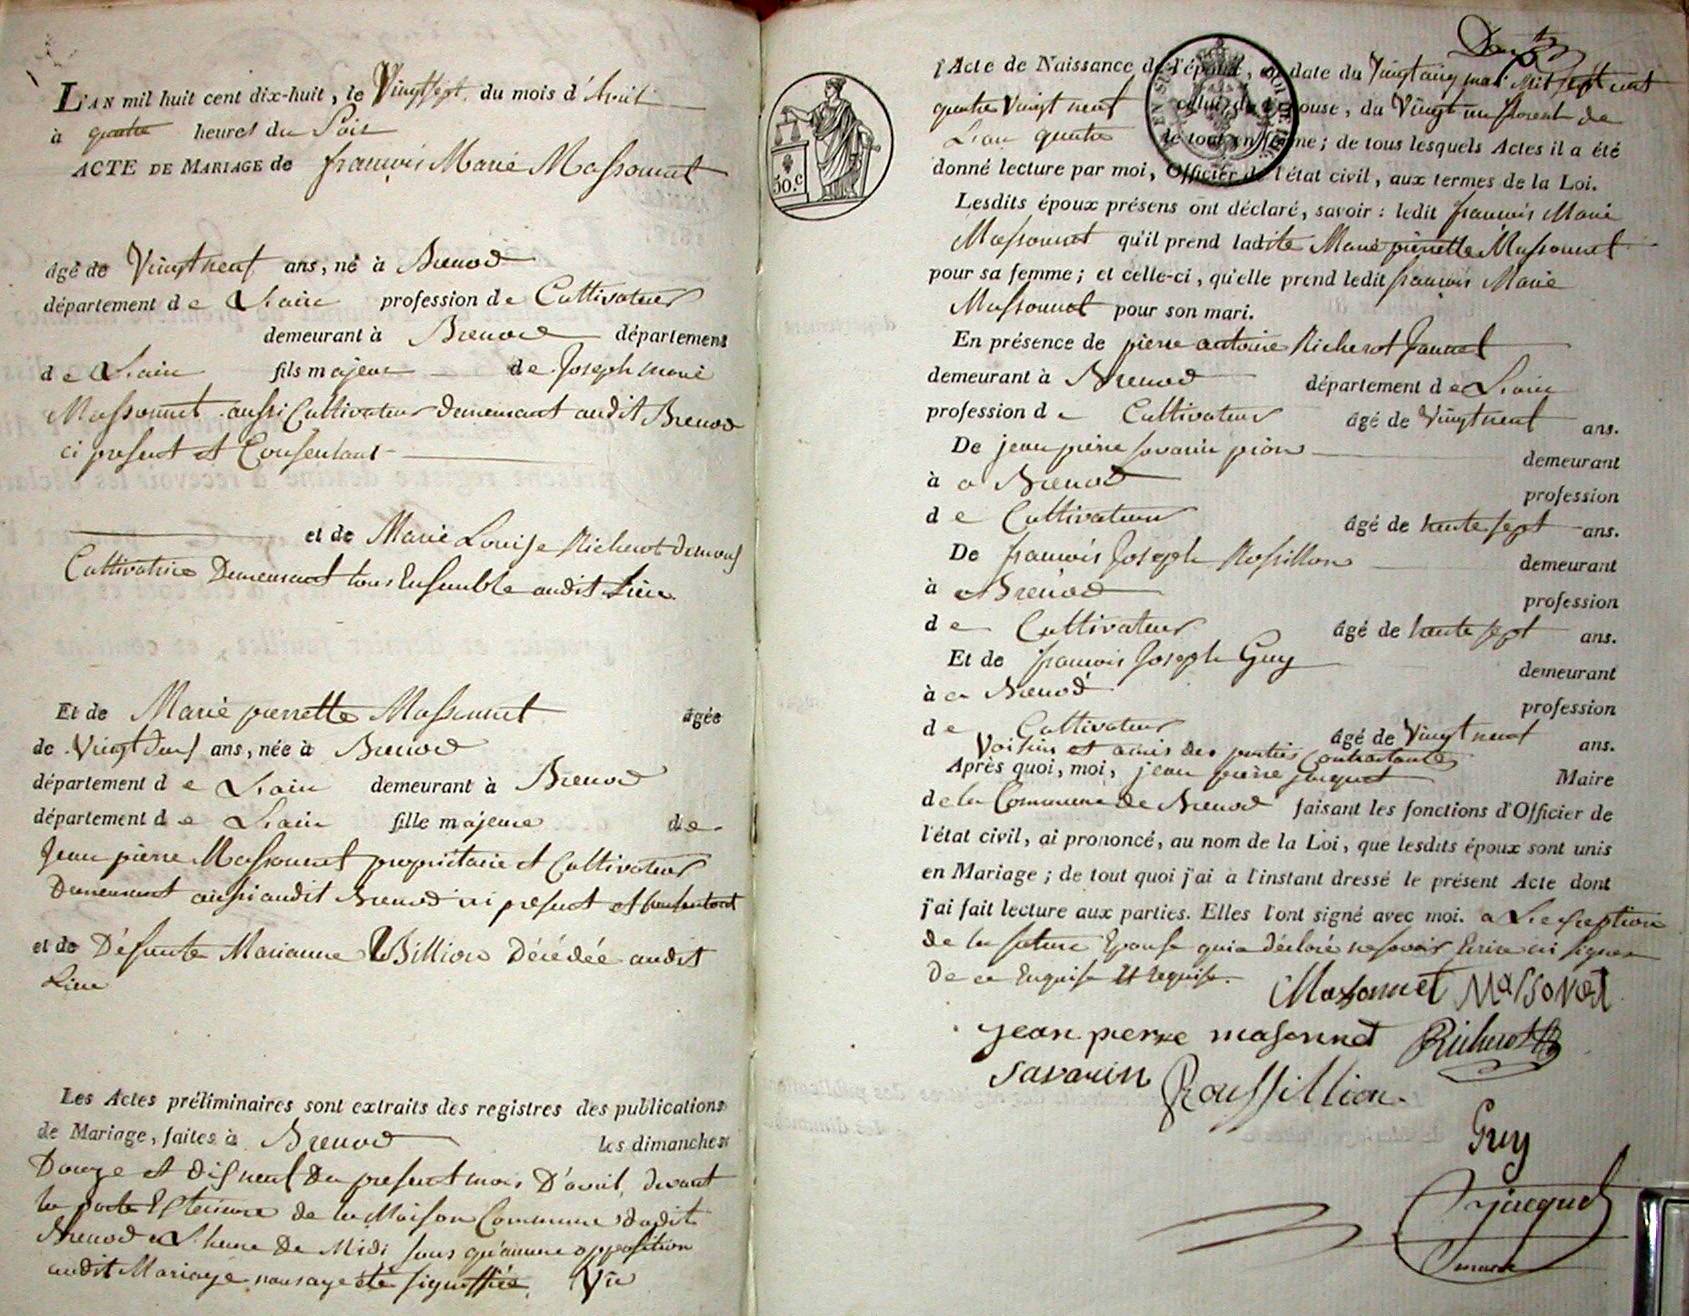 L'AN mil huit cent dix-huit, le Vingtsept du mois d'Avril
à quatre heures du Soir
ACTE DE MARIAGE de françois Marie Massonnet
âgé de Vingtneuf ans, né à Brenod
département de L'ain profession de Cultivateur
demeurant à Brenod département
de L'ain fils majeur de Joseph marie
Massonnet aussi Cultivateur demeurant audit Brenod
ci present et Consentant
et de Marie Louise Richerot
Cultivatrice Demeurant tous Ensemble audit Lieu
Et de Marie pierrette Massonnet âgée
de Vingt deux ans, née à Brenod
département de L'ain demeurant à Brenod
département de L'ain fille majeure de
Jean pierre Massonnet propriétaire et Cultivateur
Demeurant aussi audit Brenod ici présent et Consentant
et de Défunte Marianne Billion Décédée audit
Lieu
Les Actes préliminaires sont extraits des registres des publications
de Mariage, faites à Brenod les dimanches
Douze et dixneuf du present mois D'avril, devant
la porte Exterieure de la Maison Commune dudit
Brenod a L'heure De Midi sans qu'aucune opposition
audit Mariage nous aye été signiffiée, Vu
Deux
l'Acte de Naissance de l'époux, en date du Vingtcinq mai Mil sept cent
quatre Vingt neuf celui de l'épouse, du Vingt un floreal de
L'an quatre le tout en forme; de tous lesquels Actes il a été
donné lecture par moi, Officier de l'état civil, aux termes de la Loi.
50.c
Lesdits époux présens ont déclaré, savoir : ledit françois Marie
Massonnet qu'il prend ladite Marie pierrette Massonnet
pour sa femme; et celle-ci, qu'elle prend ledit françois Marie
Massonnet pour son mari.
En présence de pierre antoine Richerot
demeurant à Brenod département de L'ain
profession de Cultivateur âgé de Vingtneuf ans.
De jean pierre savarin pion demeurant
à a Brenod profession
de Cultivateur âgé de trente sept ans.
De francois Joseph Rossillon demeurant
à a Brenod profession
de Cultivateur âgé de trente sept ans.
Et de francois Joseph Guy demeurant
à a Brenod profession
de Cultivateur âgé de Vingt neuf ans.
Voisins et amis des parties Contractantes
Après quoi, moi, jean pierre jacquet Maire
de la Commune de Brenod faisant les fonctions d'Officier de
l'état civil, ai prononcé, au nom de la Loi, que lesdits époux sont unis
en Mariage; de tout quoi j'ai a l'instant dressé le présent Acte dont
j'ai fait lecture aux parties. Elles l'ont signé avec moi. a L'exception
de la future Epouse qui a déclaré ne savoir Ecrire ni signer
De ce Enquise Et requise.
Massonnet Massonet
jean pierre masonnet Richerot
savarin Roussillion
Guy
Jacquet